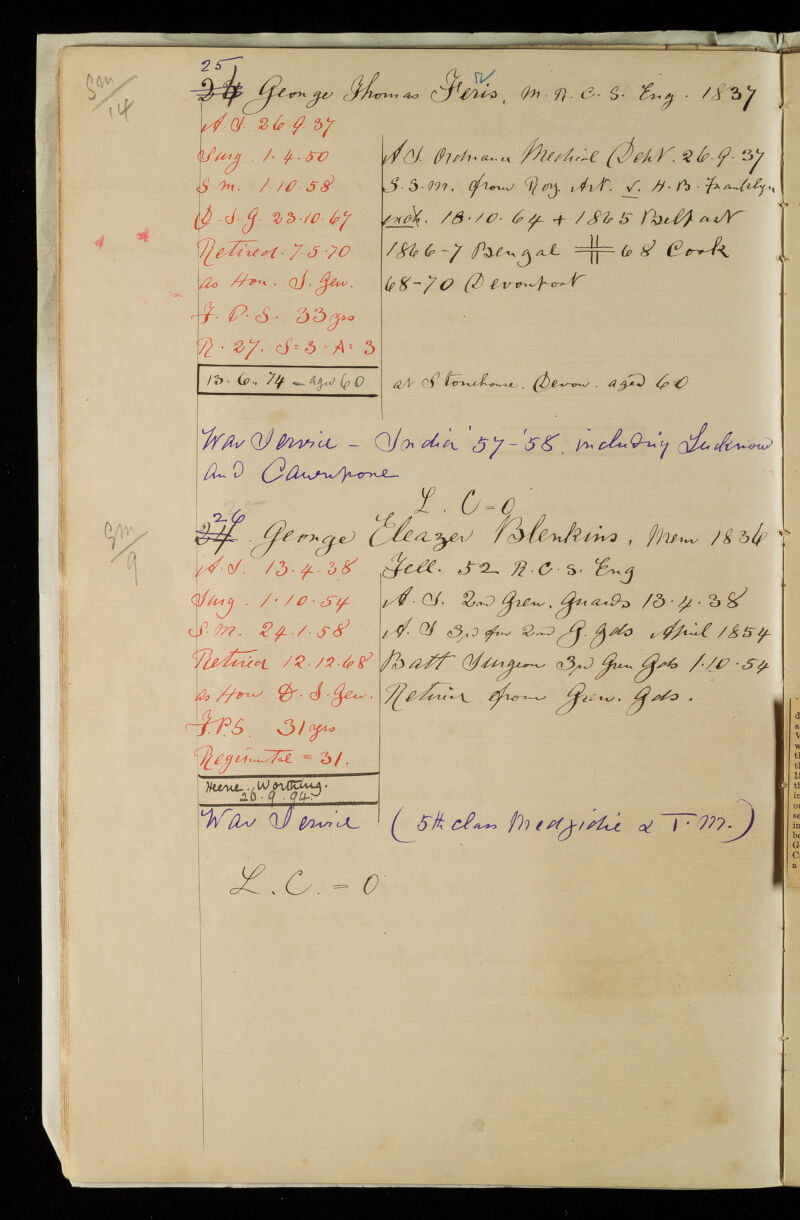 25
24 George Thomas Feris, M.R.C.S. Eng. 1837
A.S. 26.9.37
Surg. 1.4.50
A.S. Ordnance Medical Dept. 26.9.37
S.M. 1.10.58
S.S.M. from Roy. Art. v. H.B. Franklyn
D.S.G. 23.10.67
exch. 18.10.64 + 1865 Belfast
Retired. 7.5.70
1866-7 Bengal 68 Cork
as Hon. I. Gen.
68-70 Devonport
F.P.S. 33 yrs
R. 27. S=3. A=3
13.6.74 - aged 60
at Stonehouse. Devon. aged 60
War Service - India '57-'58, including Lucknow
and Cawnpore
L.C=0
26
24. George Eleazer Blenkins, Mem 1836
A.S. 13.4.38
Fell. 52 R.C.S. Eng
Surg. 1.10.54
A.S. 2nd Gren. Guards 13.4.38
S.M. 24.1.58
A.S 3rd for 2nd G. Gds April 1854
Retired 12.12.68
Batt Surgeon 3rd Gren Gds 1.10.54
as Hon D.I. Gen.
Retired from Gren. Gds.
F.P.S. 31 yrs
Regimental = 31.
Heene. Worthing.
26.9.94.
War Service (5th class Medjidie & T.M.)
L.C. = 0